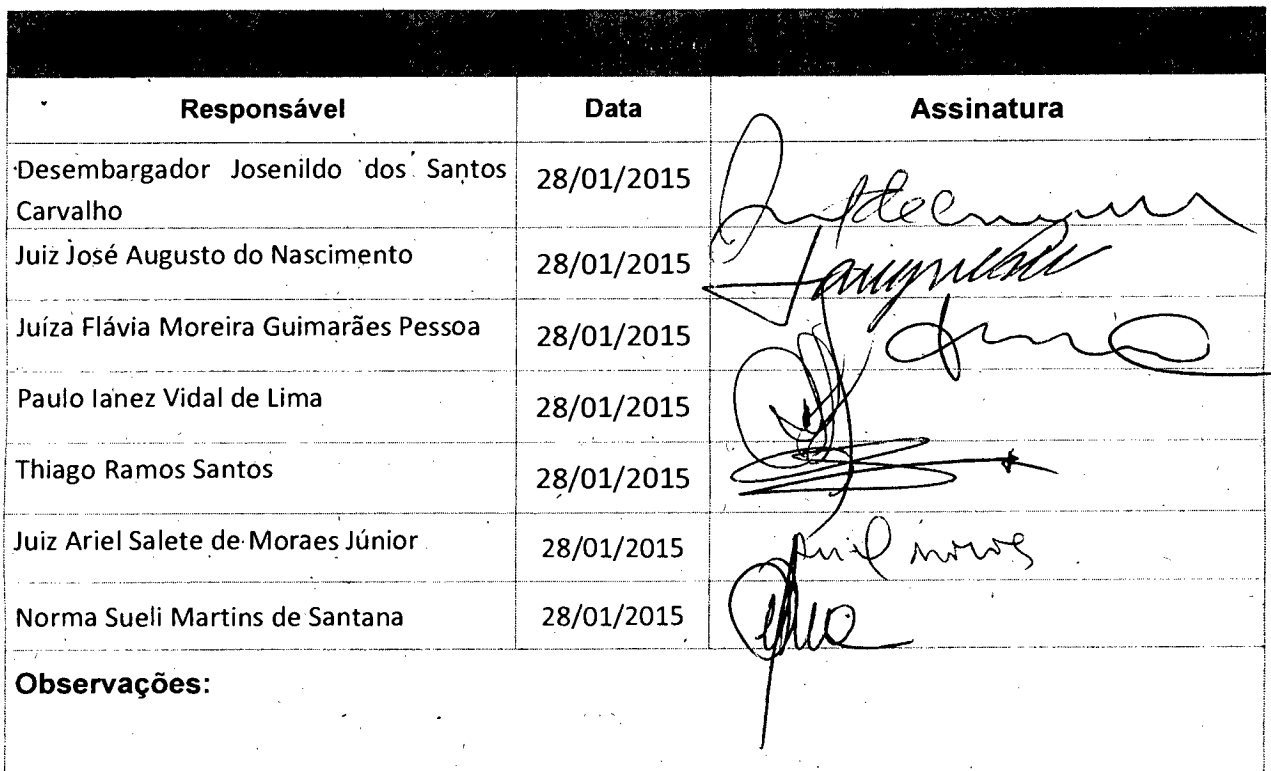 Responsável Data Assinatura
Desembargador Josenildo dos Santos
Carvalho 28/01/2015
Juiz José Augusto do Nascimento 28/01/2015
Juíza Flávia Moreira Guimarães Pessoa 28/01/2015
Paulo Ianez Vidal de Lima 28/01/2015
Thiago Ramos Santos 28/01/2015
Juiz Ariel Salete de Moraes Júnior 28/01/2015
Norma Sueli Martins de Santana 28/01/2015
Observações: